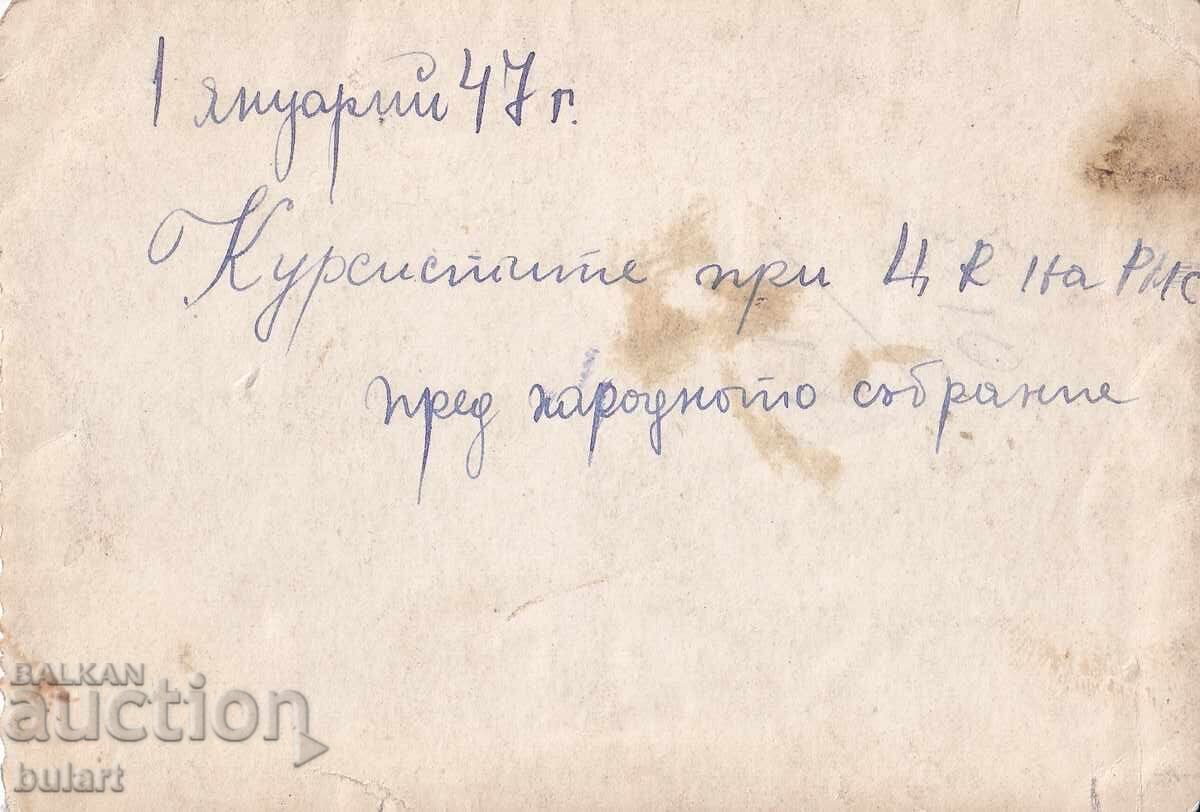 1 януарий 47 г.
Курсистите при Ц К на РМС
пред народното събрание
BALKAN
auction
bulart